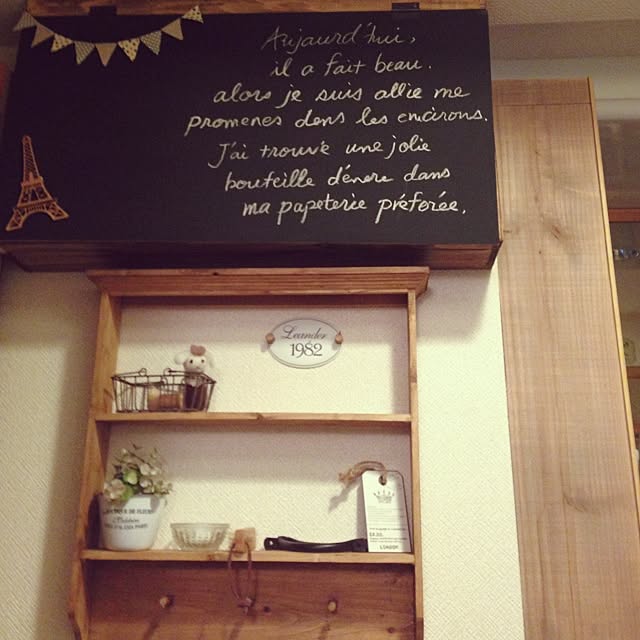 Aujourd'hui,
il a fait beau.
alors je suis allie me
promenes dens les encirons.
J'ai trouve une jolie
bouteille d'encre dans
ma papeterie préforée.
Leander
1982
LONDON